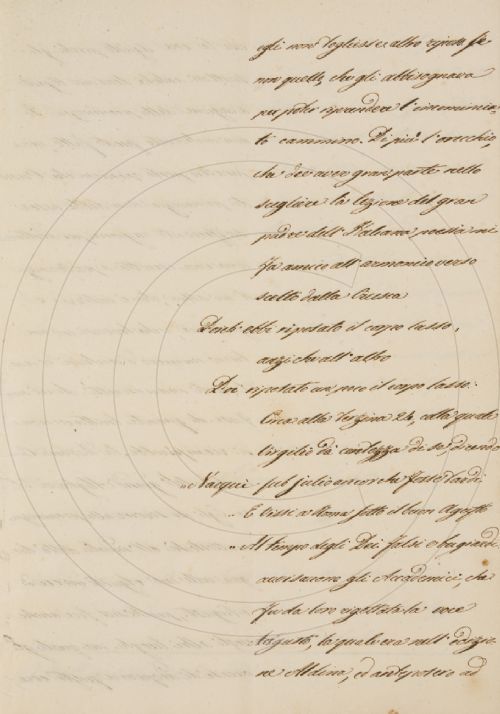 egli non togliesse altro riposo se
non quello, che gli abbisognava
per poter riprendere l'incomincia-
to cammino. Di più l'orecchio,
che dee aver gran parte nello
scegliere la lezione del gran
padre dell'Italiana poesia mi
fa amico all'armonico verso
scelto dalla Crusca
Poich' ebbi riposato il corpo lasso,
anzi che all'altro
Poi riposato un poco il corpo lasso.
Circa alla terzina 24, colla quale
Virgilio dà contezza di se, dicendo
„ Nacqui sub julio ancorchè fosse tardi
„ E vissi a Roma sotto il buon Augusto
„ Al tempo degli Dei falsi e bugiardi.
avvisarono gli Accademici, che
fu da loro rigettata la voce
Augusto, la quale era nell'edizio-
ne Aldina, ed anteposero ad